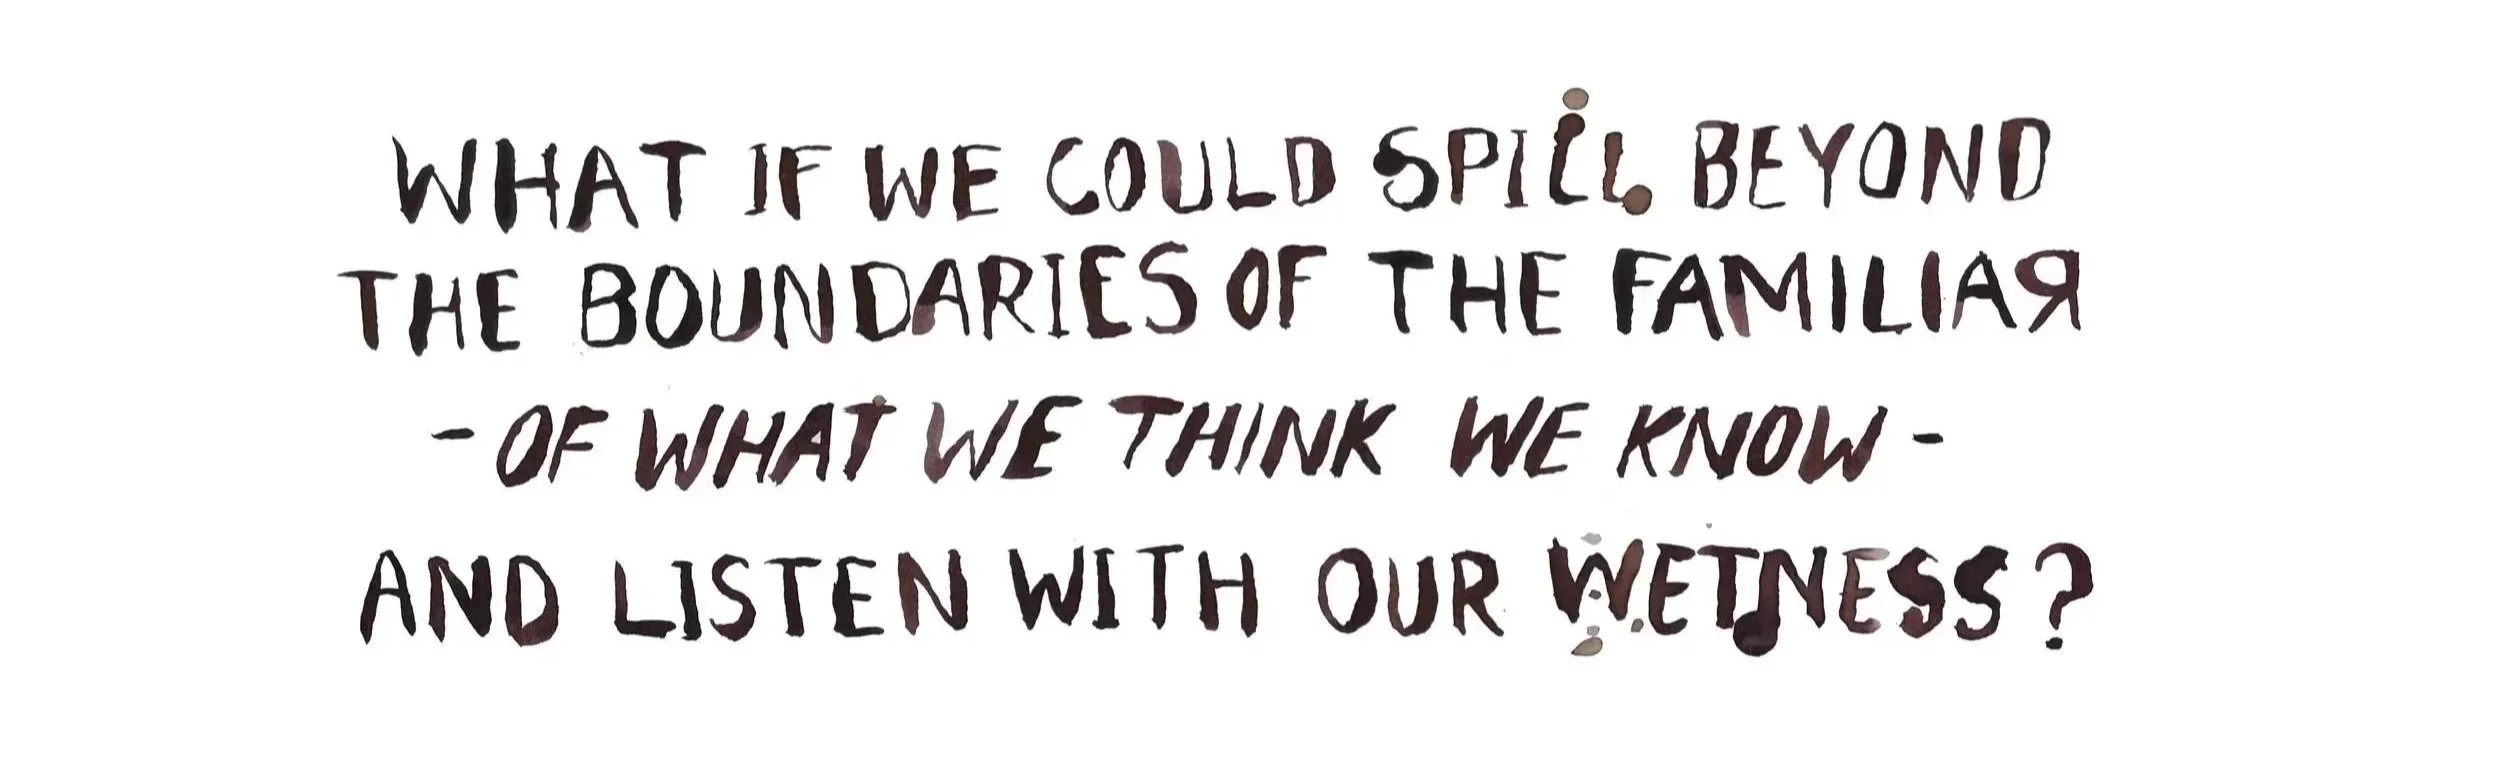 WHAT IF WE COULD SPILL BEYOND
THE BOUNDARIES OF THE FAMILIAЯ
- OF WHAT WE THINK WE KNOW -
AND LISTEN WITH OUR WETNESS?